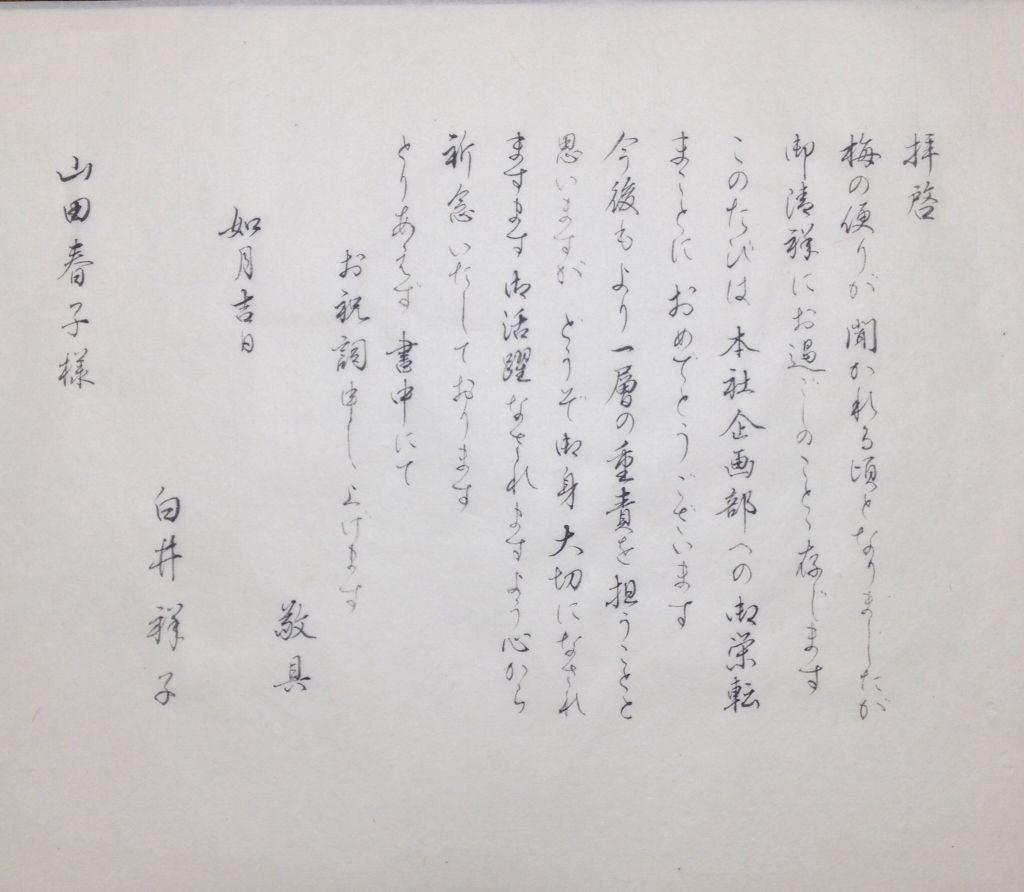 拝啓
梅の便りが聞かれる頃となりましたが
御清祥にお過ごしのことゝ存じます
このたびは本社企画部への御栄転
まことにおめでとうございます
今後もより一層の重責を担うことと
思いますがどうぞ御身大切になされ
ますます御活躍なされますよう心から
祈念いたしております
とりあえず書中にて
お祝詞申し上げます
敬具
如月吉日
白井祥子
山田春子様